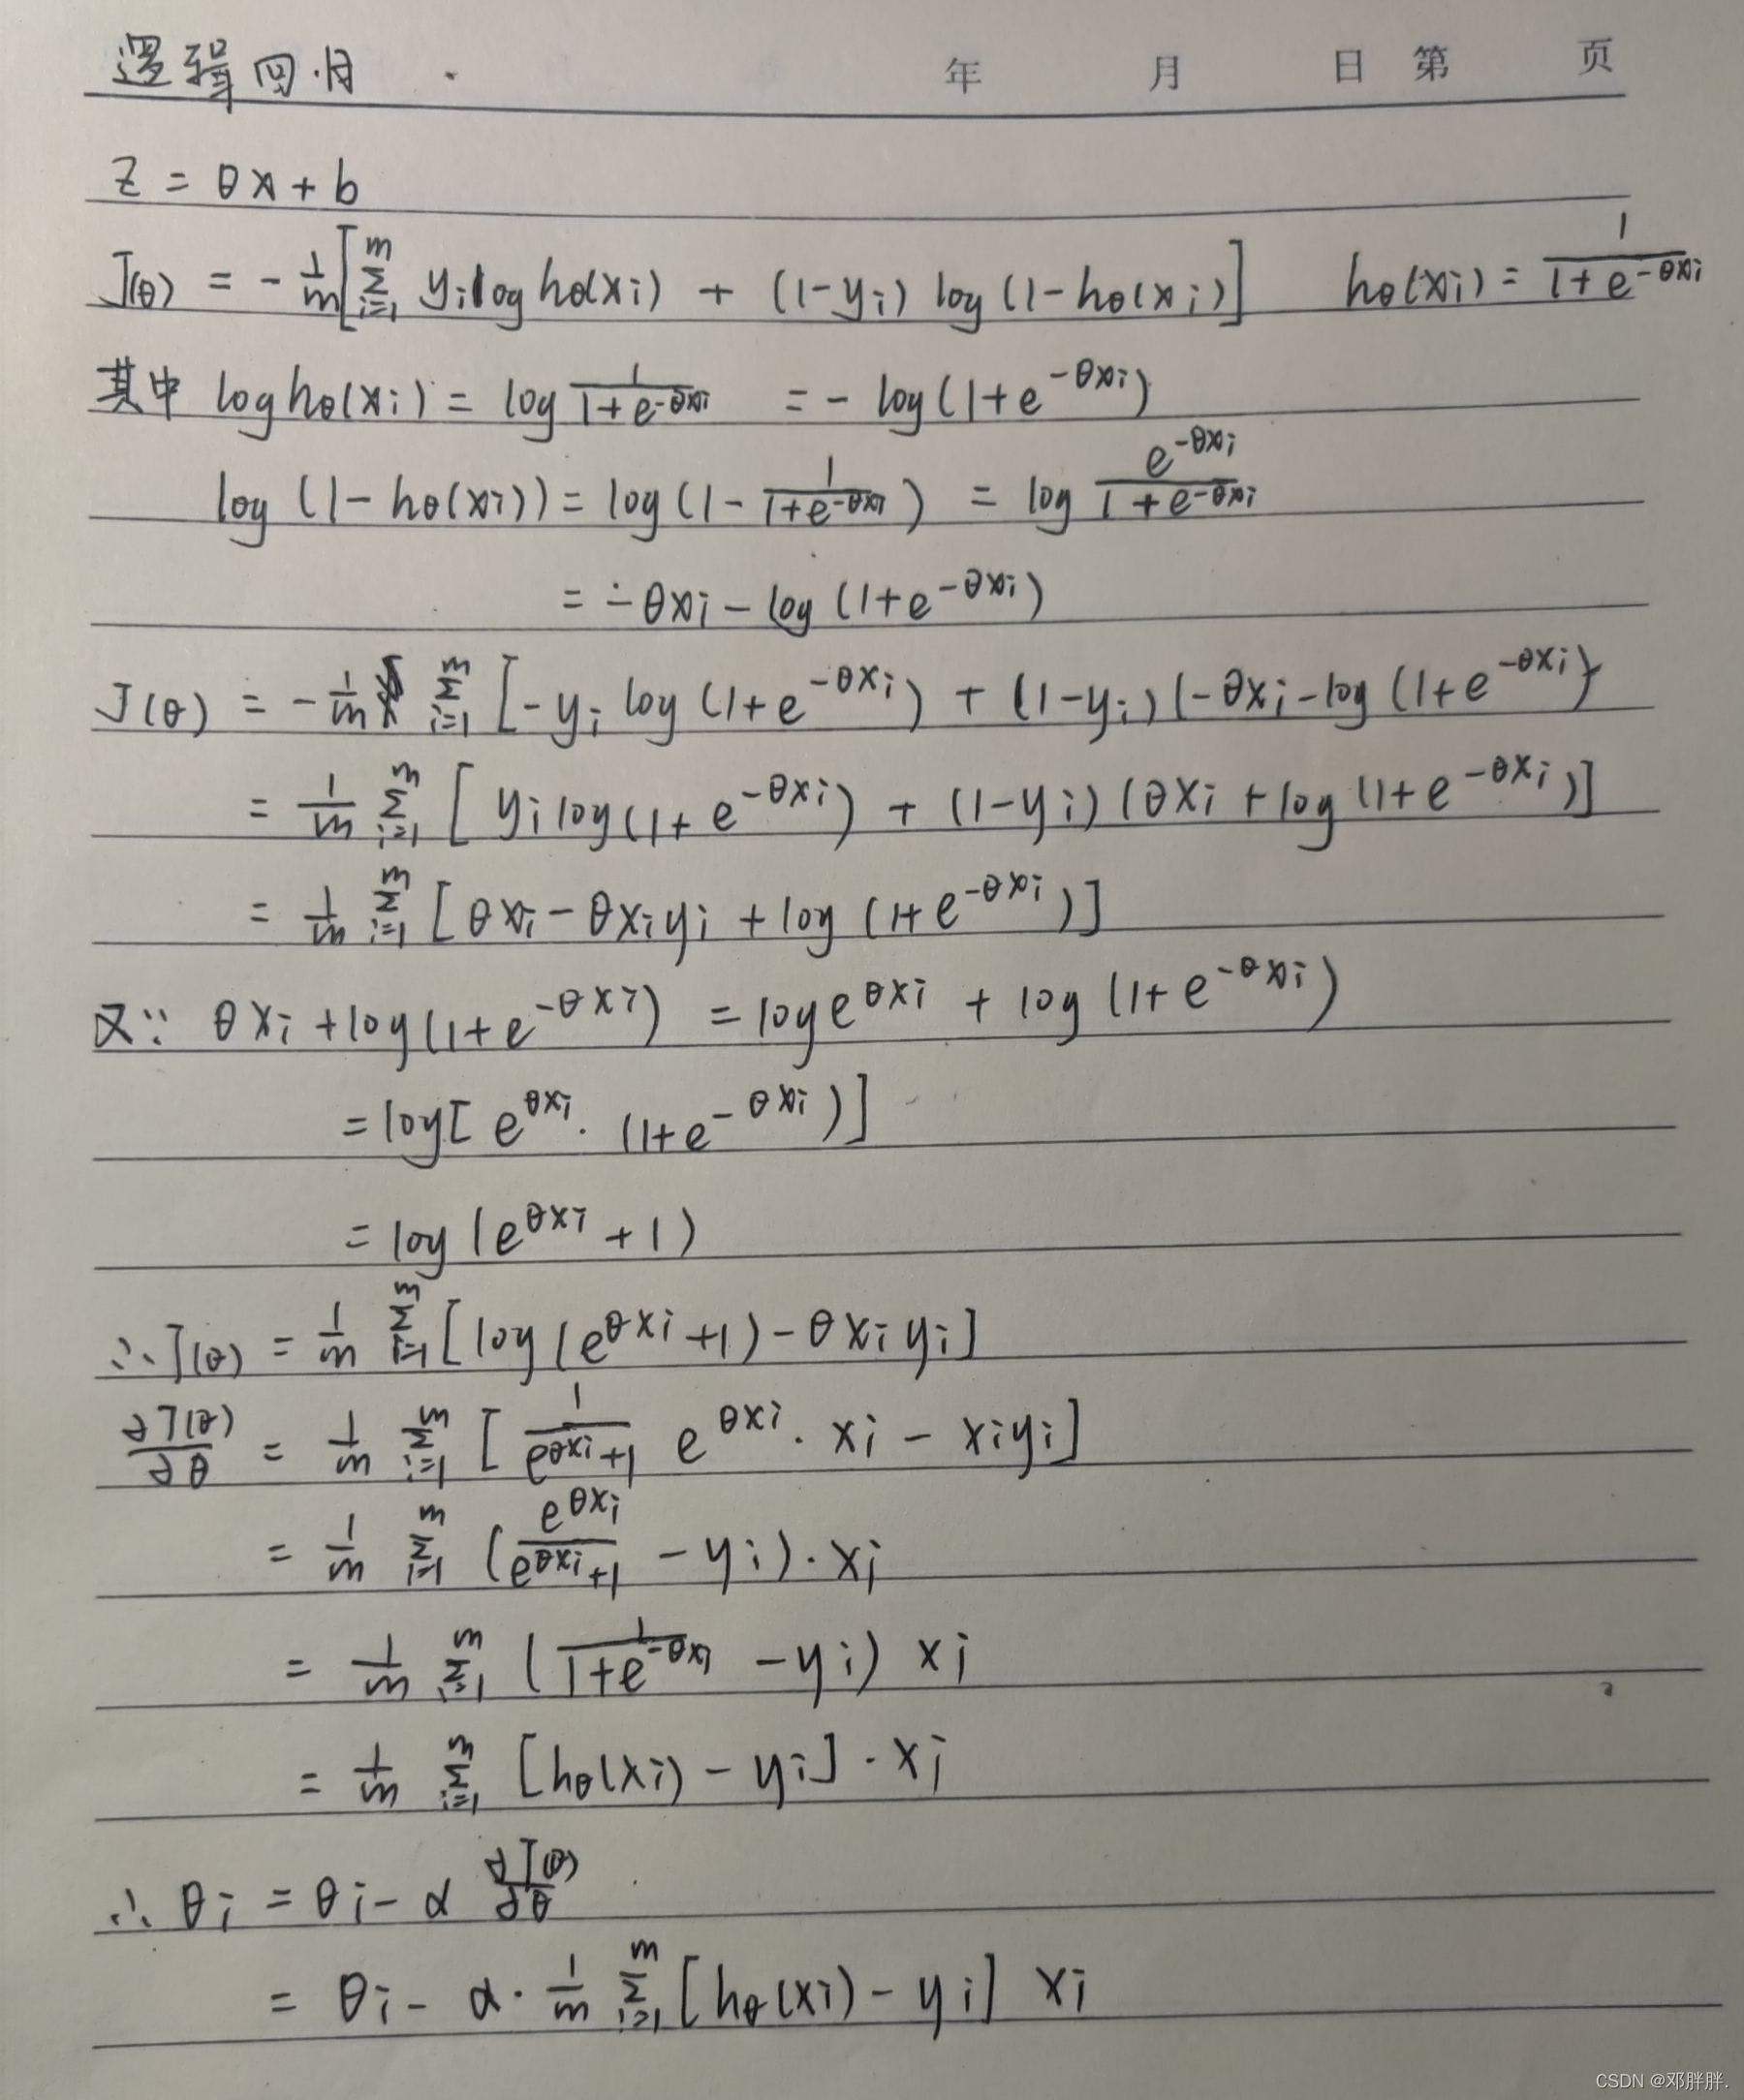 逻辑回归 年 月 日 第 页
z = θx + b
J(θ) = -1/m [∑_{i=1}^{m} y_i log h_θ(x_i) + (1-y_i) log (1-h_θ(x_i)] h_θ(x_i) = 1/(1+e^{-θx_i})
其中 log h_θ(x_i) = log 1/(1+e^{-θx_i}) = - log(1+e^{-θx_i})
log (1-h_θ(x_i)) = log(1 - 1/(1+e^{-θx_i})) = log e^{-θx_i}/(1+e^{-θx_i})
= -θx_i - log (1+e^{-θx_i})
J(θ) = -1/m ∑_{i=1}^{m} [-y_i log (1+e^{-θx_i}) + (1-y_i)(-θx_i - log (1+e^{-θx_i})
= 1/m ∑_{i=1}^{m} [y_i log(1+e^{-θx_i}) + (1-y_i)(θx_i + log (1+e^{-θx_i})]
= 1/m ∑_{i=1}^{m} [θx_i - θx_i y_i + log (1+e^{-θx_i})]
又∵ θx_i + log(1+e^{-θx_i}) = log e^{θx_i} + log (1+e^{-θx_i})
= log[e^{θx_i} · (1+e^{-θx_i})]
= log (e^{θx_i} + 1)
∴ J(θ) = 1/m ∑_{i=1}^{m} [log (e^{θx_i}+1) - θx_i y_i]
∂J(θ)/∂θ = 1/m ∑_{i=1}^{m} [1/(e^{θx_i}+1) e^{θx_i} · x_i - x_i y_i]
= 1/m ∑_{i=1}^{m} (e^{θx_i}/(e^{θx_i}+1) - y_i) · x_i
= 1/m ∑_{i=1}^{m} (1/(1+e^{-θx_i}) - y_i) x_i
= 1/m ∑_{i=1}^{m} [h_θ(x_i) - y_i] · x_i
∴ θ_i = θ_i - α ∂J(θ)/∂θ
= θ_i - α · 1/m ∑_{i=1}^{m} [h_θ(x_i) - y_i] x_i
CSDN @邓胖胖.